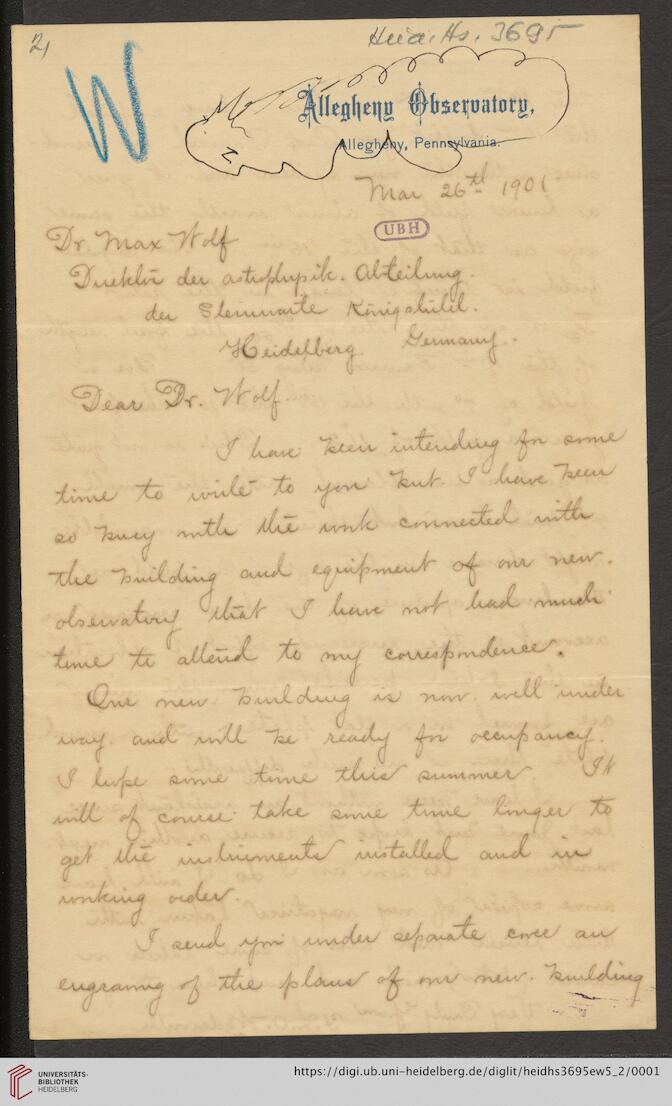 2,
Heid. Hs. 3695
W
Allegheny Observatory,
Allegheny, Pennsylvania.
Mar 26th 1901
UBH
Dr Max Wolf
Direktor der astrophysik. Abteilung.
der Sternwarte Königstuhl.
Heidelberg. Germany.
Dear Dr. Wolf.
I have been intending for some
time to write to you but I have been
so busy with the work connected with
the building and equipment of our new
observatory that I have not had much
time to attend to my correspondence.
Our new building is now well under
way and will be ready for occupancy
I hope some time this summer. It
will of course take some time longer to
get the instruments installed and in
working order.
I send you under separate cover an
engraving of the plans of our new building
UNIVERSITÄTS-
BIBLIOTHEK
HEIDELBERG
https://digi.ub.uni-heidelberg.de/diglit/heidhs3695ew5_2/0001